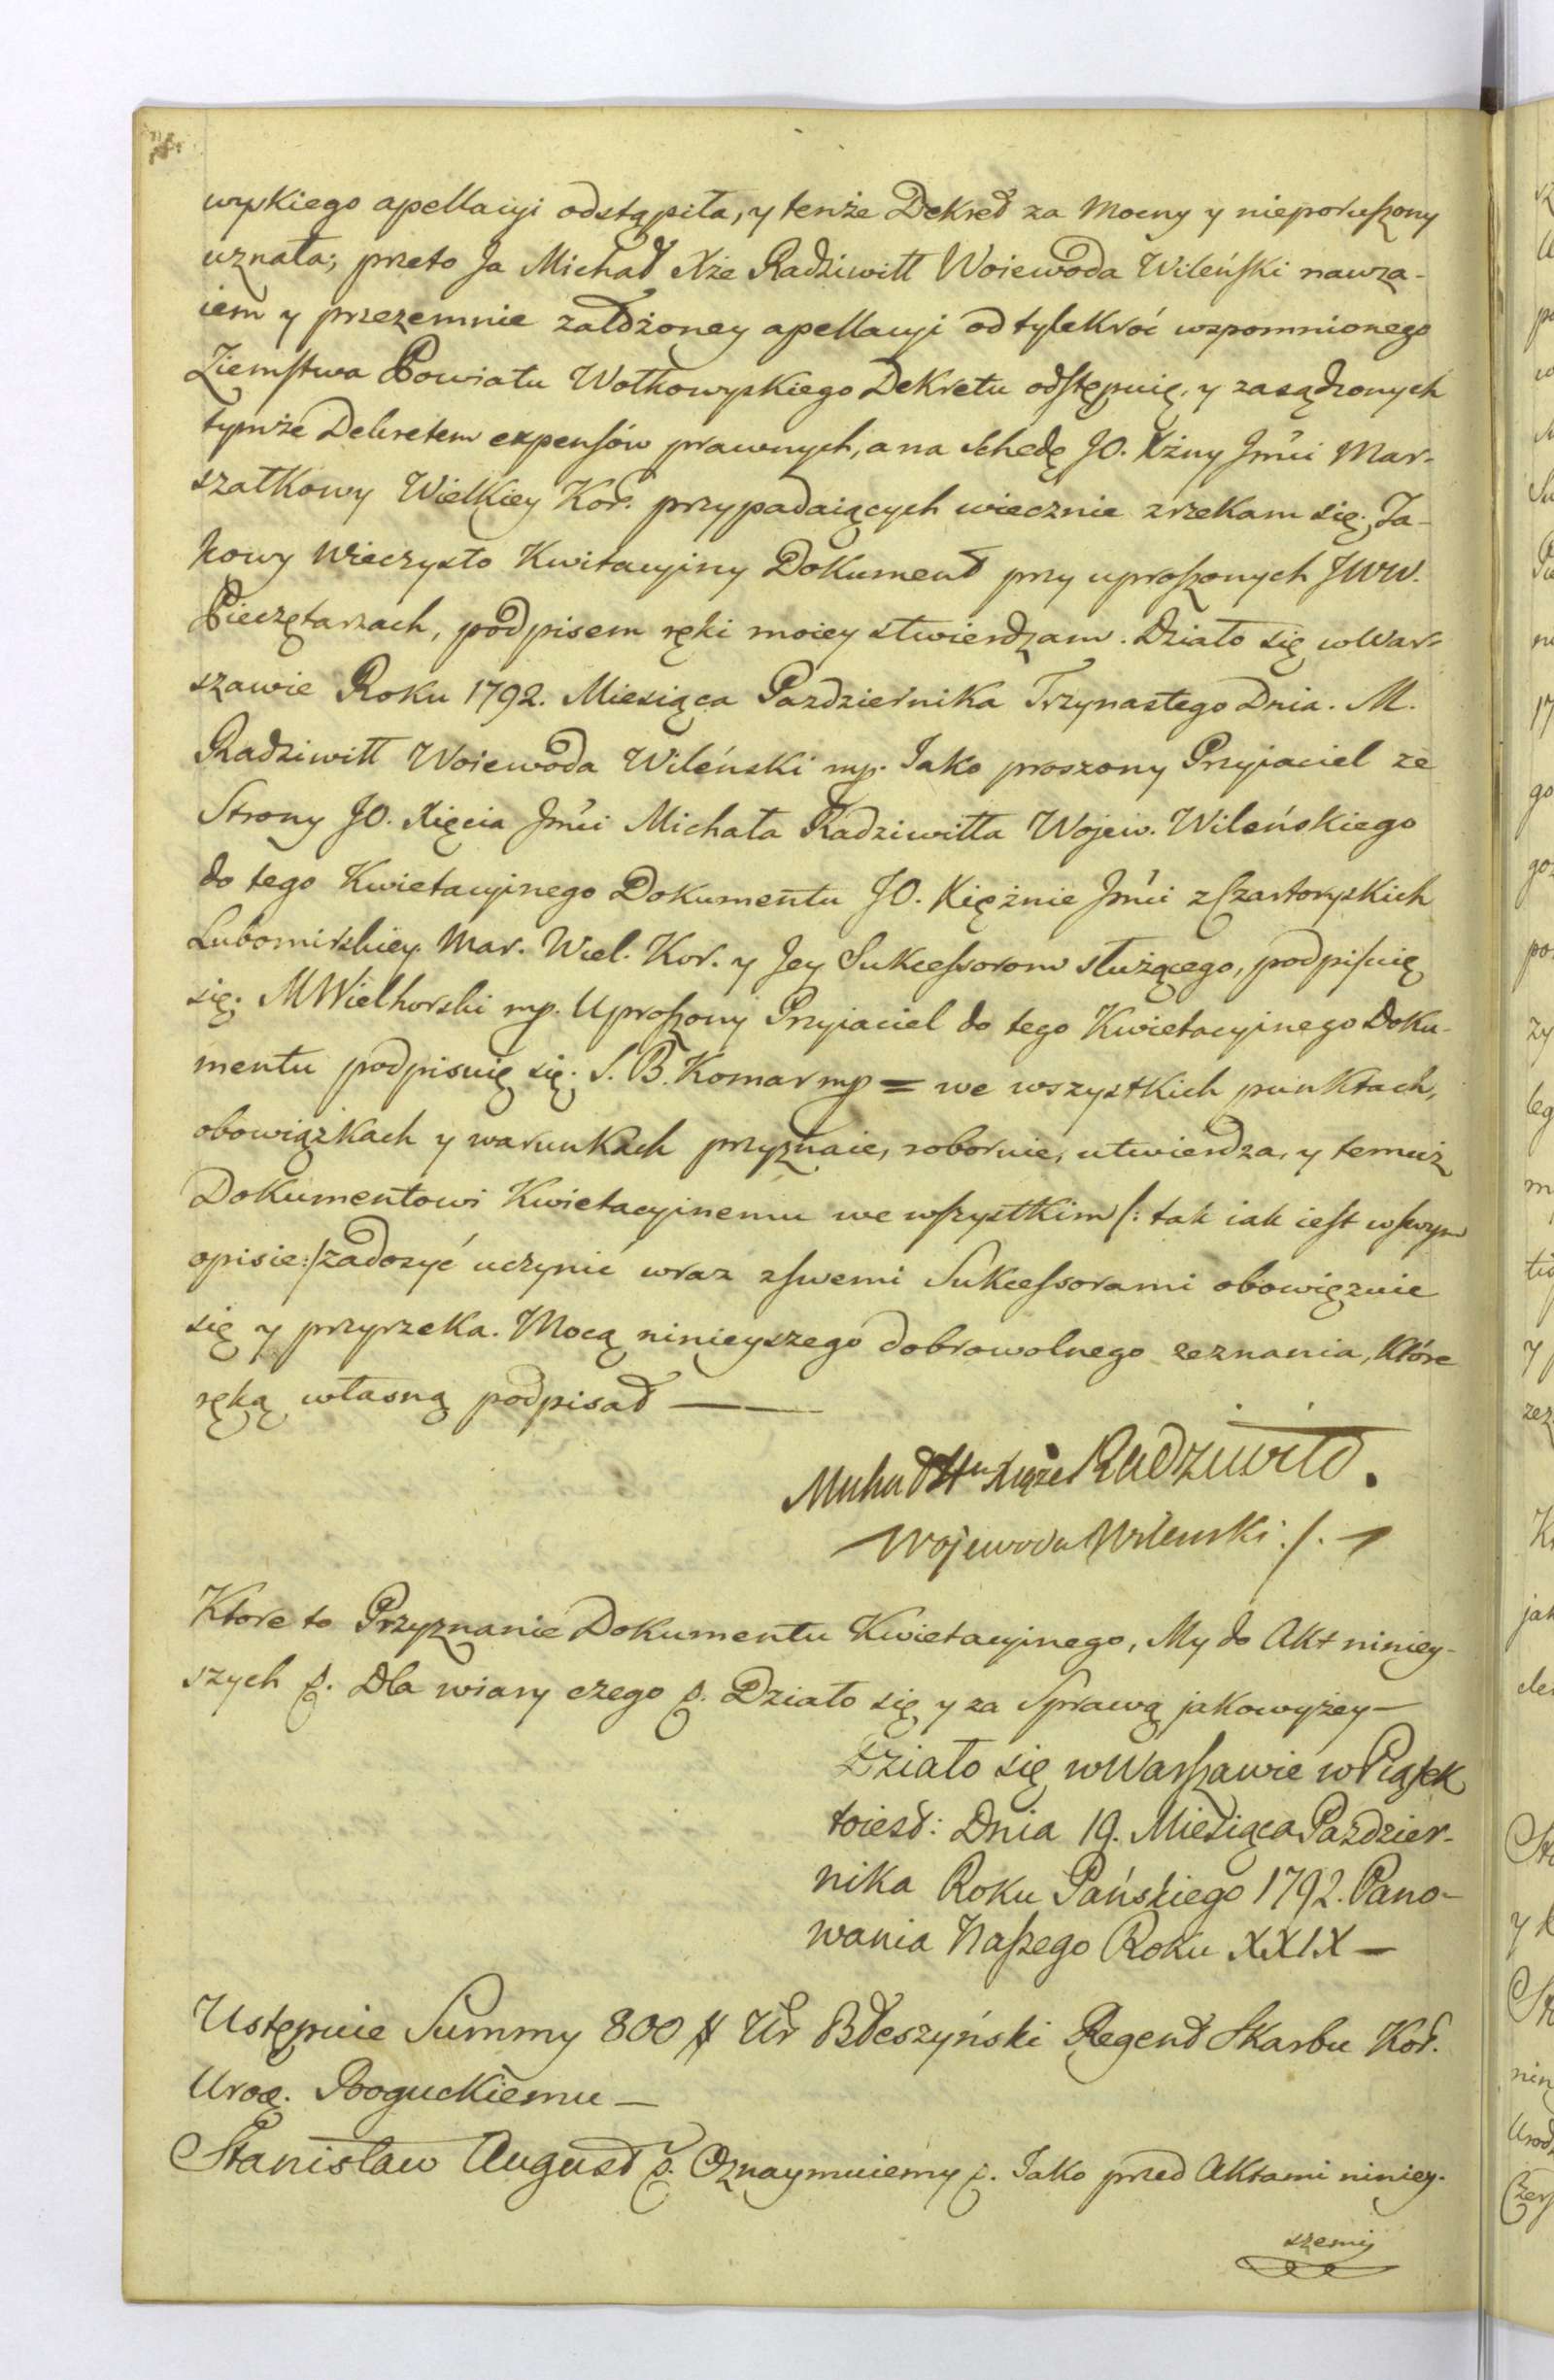 wyskiego apellacyi odstąpiła, y tenże Dekret za Mocny y nieporuszony
uznała; przeto Ja Michał Xże Radziwiłł Woiewoda Wileński nawza-
iem y przezemnie założoney apellacyi od tylekroć wspomnionego
Ziemstwa Powiatu Wołkowyskiego Dekretu odstępuię, y zasądzonych
tymże Dekretem expensów prawnych, a na Schedę JO. Xżny Jmći Mar-
szałkowy Wielkiey Kor. przypadaiących wiecznie zrzekam się. Ta-
kowy Wieczysto Kwitacyiny Dokument przy uproszonych JWW.
Pieczętarzach, podpisem ręki moiey stwierdzam. Działo się w War-
szawie Roku 1792. Miesiąca Pazdziernika Trzynastego Dnia. M.
Radziwiłł Woiewoda Wileński mp. Jako proszony Przyiaciel ze
Strony JO. Xięcia Jmći Michała Radziwiłła Wojew. Wileńskiego
do tego Kwietacyinego Dokumentu JO. Xiężnie Jmći z Czartoryskich
Lubomirskiey Mar. Wiel. Kor. y Jey Sukcessorom służącego, podpisuię
się. M Wielhorski mp. Uproszony Przyiaciel do tego Kwietacyinego Doku-
mentu podpisuię się. S. B. Komar mp = we wszystkich punktach,
obowiązkach y warunkach przyznaie, roboruie, utwierdza, y temuż
Dokumentowi Kwietacyinemu we wszystkim /: tak iak iest w swym
opisie :/ zadosyć uczynić wraz z swemi Sukcessorami obowięzuie
się y przyrzeka. Mocą ninieyszego dobrowolnego zeznania, które
ręką własną podpisał —
Michał Xiąże Radziwiłł.
Wojewoda Wilenski
Ktore to Przyznanie Dokumentu Kwietacyinego, My do Akt niniey-
szych &. Dla wiary czego &. Działo się y za Sprawą jakowyżey —
Działo się w Warszawie w Piątek
toiest: Dnia 19. Miesiąca Pazdzier-
nika Roku Pańskiego 1792. Pano-
wania Naszego Roku XXIX —
Ustępuie Summy 800 # Ur Błeszyński Regent Skarbu Kor.
Urod. Boguckiemu —
Stanisław August &. Oznaymuiemy &. Jako przed Aktami niniey-
szemi